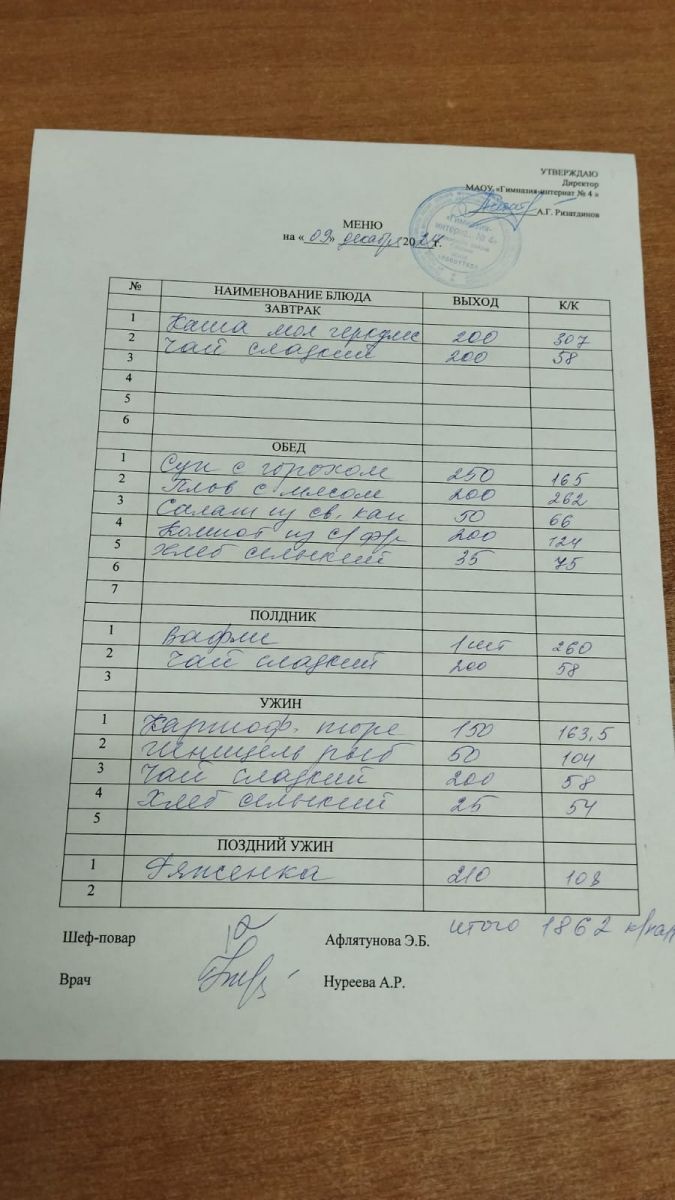 УТВЕРЖДАЮ
Директор
МАОУ «Гимназия-интернат № 4»
А.Г. Ризатдинов
«Гимназия-
интернат № 4»
МЕНЮ
на «09» декабря 2024г.
№ НАИМЕНОВАНИЕ БЛЮДА ВЫХОД К/К
ЗАВТРАК
1 Каша мол геркулес 200 307
2 Чай сладкий 200 58
3
4
5
6
ОБЕД
1 Суп с горохом 250 165
2 Плов с мясом 200 262
3 Салат из св. кап 50 66
4 Компот из с/фр. 200 124
5 Хлеб сельский 35 75
6
7
ПОЛДНИК
1 Вафли 1 шт 260
2 Чай сладкий 200 58
3
УЖИН
1 Картоф. пюре 150 163,5
2 Шницель рыб 50 104
3 Чай сладкий 200 58
4 Хлеб сельский 25 54
5
ПОЗДНИЙ УЖИН
1 Ряженка 210 108
2
итого 1862 к/кал
Шеф-повар Афлятунова Э.Б.
Врач Нуреева А.Р.